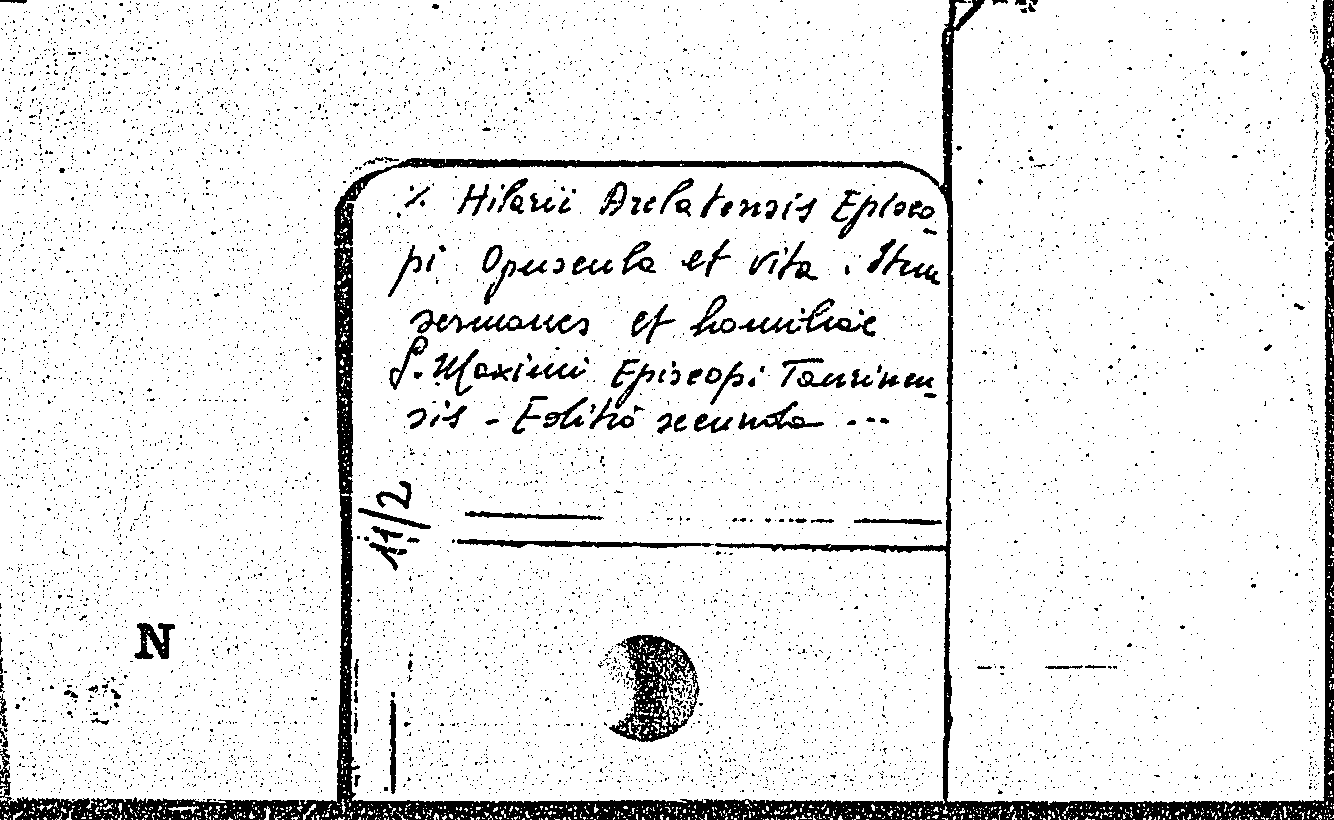 ·/. Hilarii Arelatensis Episco-
pi Opuscula et vita. Item
sermones et homiliae
S. Maximi Episcopi Taurinen-
sis - Editio secunda ---
11/2
N